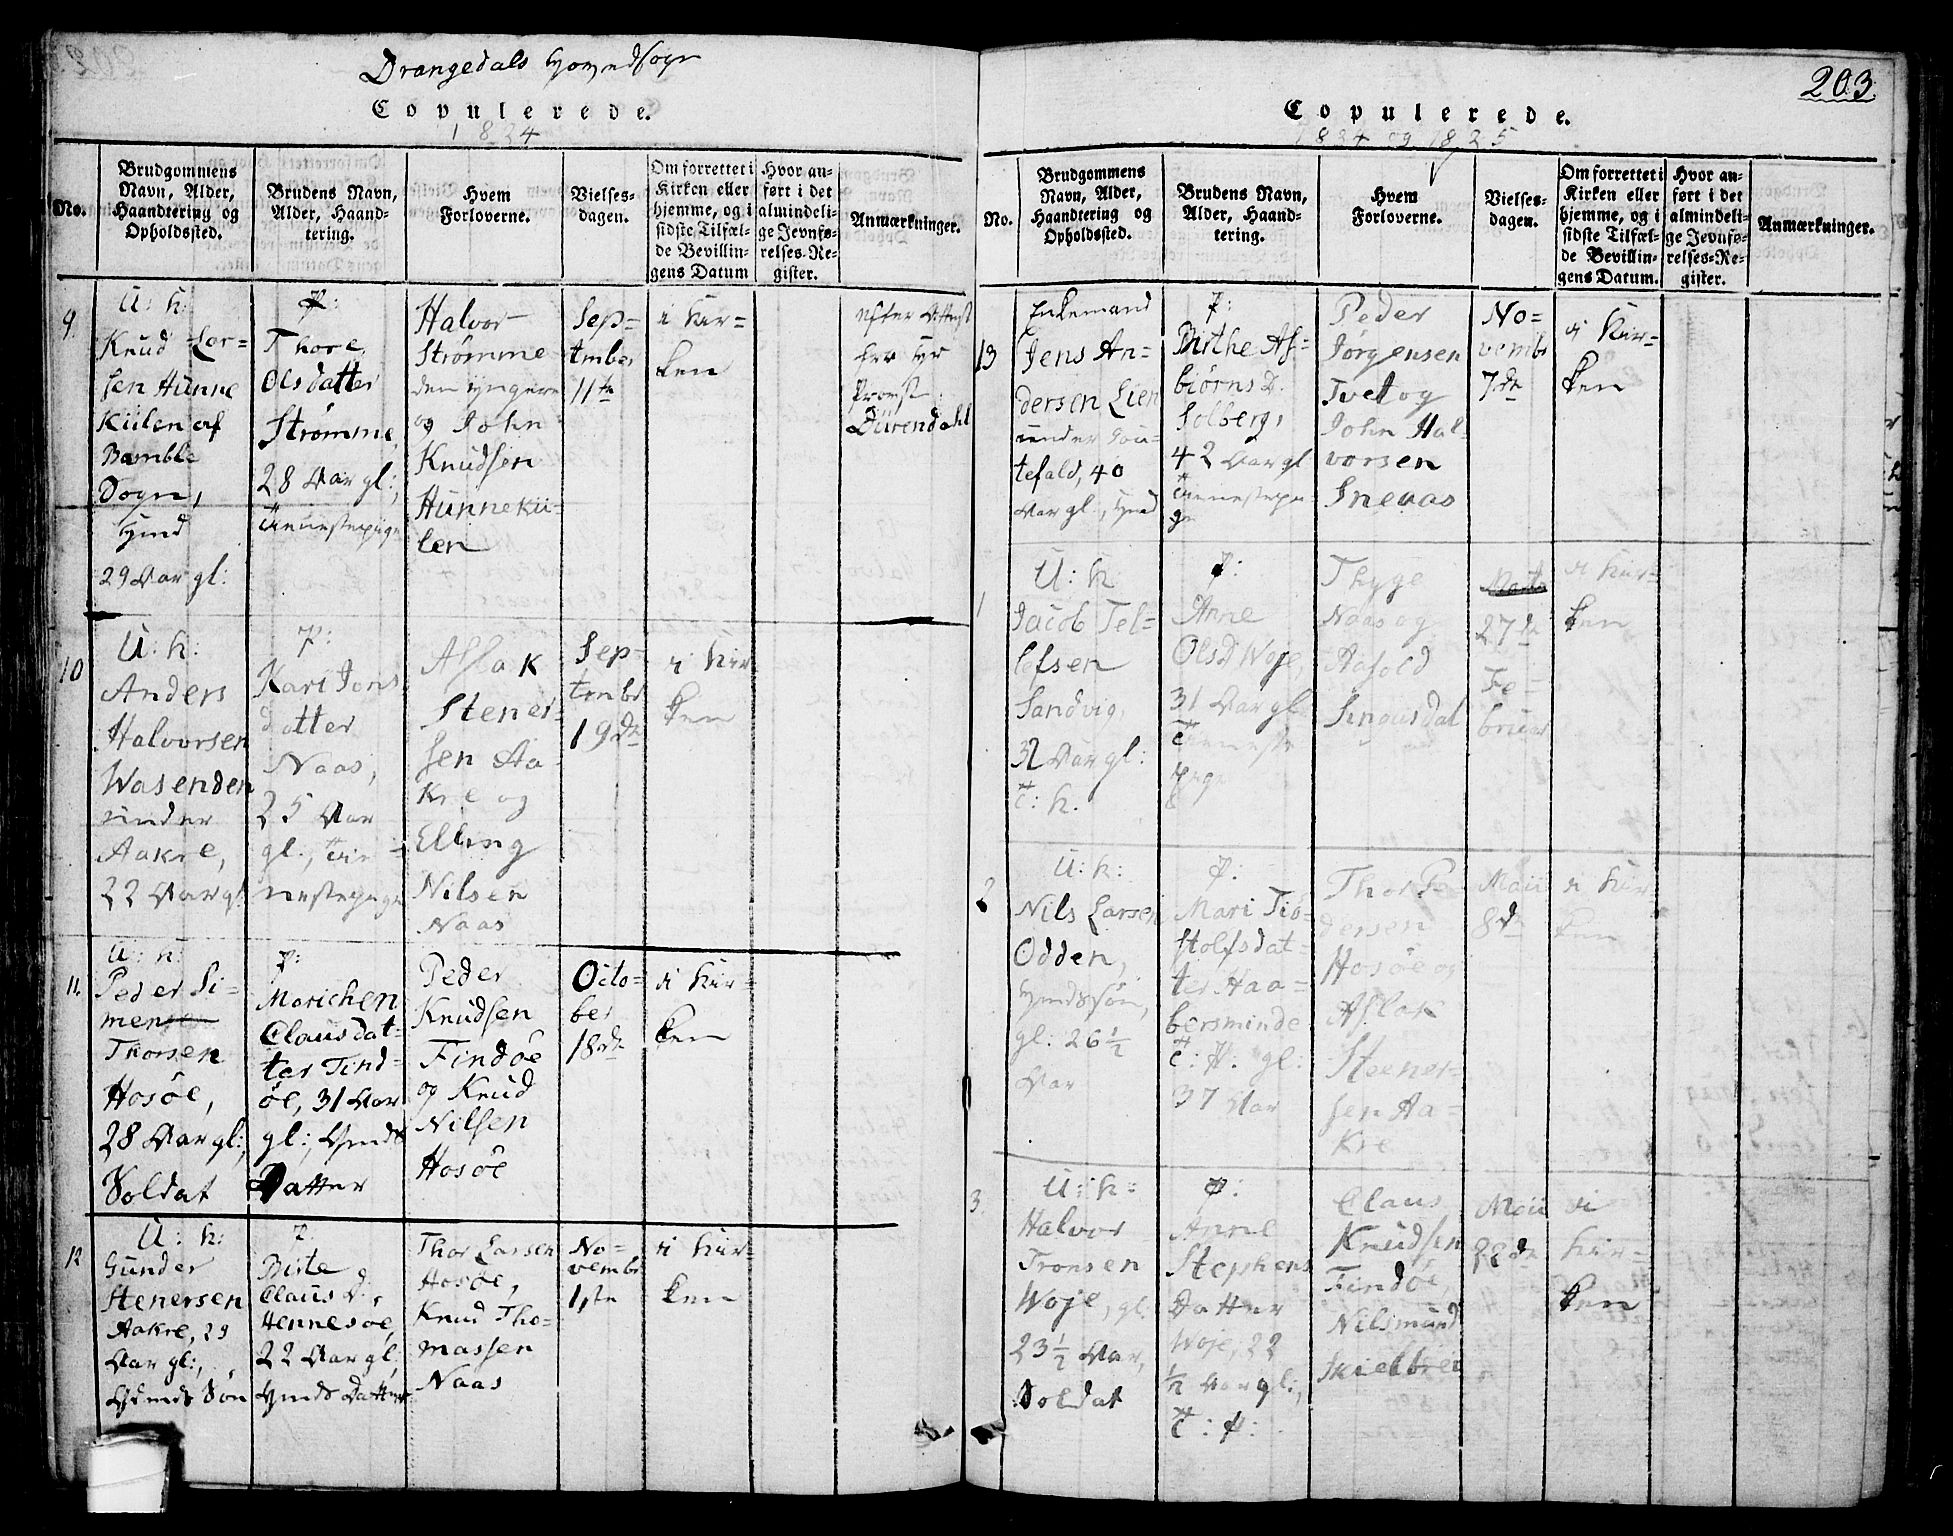 Drangedals Hovedsogn
Copulerede.
1824
No.
Brudgommens
Navn, Alder,
Haandtering og
Opholdssted.
Brudens Navn,
Alder, Haand-
tering.
Hvem
Forloverne.
Vielses-
dagen.
Om forrettet i
Kirken eller
hjemme, og i
sidste Tilfæl-
de Bevillin-
gens Datum
Hvor an-
ført i det
almindeli-
ge Jevnfø-
relses-Re-
gister.
Anmærkninger.
9.
U: k:
Knud Lor-
sen Hunne
Kiilen af
Bamble
Sogn,
29 Aar gl:
P:
Thore
Olsdatter
Strømme,
28 Aar gl:,
Tienestepige
Halvor
Strømme
den yngere
og John
Knudsen
Hunneki-
len
Sep-
tember
11te
i Kir-
ken
efter Attest
fra Hr
Provst
Dürendahl
10
U: k:
Anders
Halvorsen
Wasenden
under
Aakre,
22 Aar gl:
P:
Kari Jons
datter
Naas,
25 Aar
gl:, Tie-
nestepige
Aslak
Stener-
sen Aa-
kre og
Elling
Nilsen
Naas
Sep-
tembr
19de
i Kir-
ken
11.
U: k:
Peder Si-
mense
Thorsen
Hosöe,
28 Aar gl:,
Soldat
P:
Marichen
Clausdat-
ter Tind-
öe, 31 Aar
gl:,
Datter
Peder
Knudsen
Findöe
og Knud
Nilsen
Hosöe
Octo-
ber
18de
i Kir-
ken
12
U: k:
Gunder
Stenersen
Aakre, 29
Aar gl:,
Søn
P:
Birte
Claus D.,
Hennesöe,
22 Aar gl,
Datter
Thor Larsen
Hosöe,
Knud Tho-
massen
Naas
No-
vembr
1ste
i Kir-
ken
203.
Copulerede.
1824 og 1825
No.
Brudgommens
Navn, Alder,
Haandtering og
Opholdssted.
Brudens Navn,
Alder, Haand-
tering.
Hvem
Forloverne.
Vielses-
dagen.
Om forrettet i
Kirken eller
hjemme, og i
sidste Tilfæl-
de Bevillin-
gens Datum.
Hvor an-
ført i det
almindeli-
ge Jevnfø-
relses-Re-
gister.
Anmærkninger.
13
Enkemand
Jens An-
dersen Lien
under Tou-
tefald, 40
Aar gl:,
P:
Birthe As-
biørns D.
Solberg,
42 Aar gl
Tienestepi
ge
Peder
Jørgensen
Tvet og
John Hal-
vorsen
Sneaas
No-
vembr
7de
i Kir-
ken
1
U: k:
Jacob Tel-
lefsen
Sandvig,
32 Aar gl:
T: k.
P:
Anne
Ols D Woje,
31 Aar gl
Tieneste
pige
Thyge
Naas og
Aasold
Sinousdal
27de
Fe-
bruar
i Kir-
ken
2
U: k:
Nils Larsen
Odden,
gl: 26 1/2
Aar
P:
Mari Tio-
stolfsdat-
ter Haa-
bersminde
T: P: gl:
37 Aar
Thor Pe-
dersen
Hosöe og
Aslak
Steener-
sen Aa-
kre
Maii
8de
i Kir-
ken
3.
U: k:
Halvor
Tronsen
Woje, gl:
23 1/2 Aar,
Soldat
P:
Anne
Stephens
Datter
Woje, 22
1/2 Aar gl:,
T: P:
Claus
Knudsen
Findöe,
Nilsmund
Skielbrei
Maii
22de
i
Kir-
ken